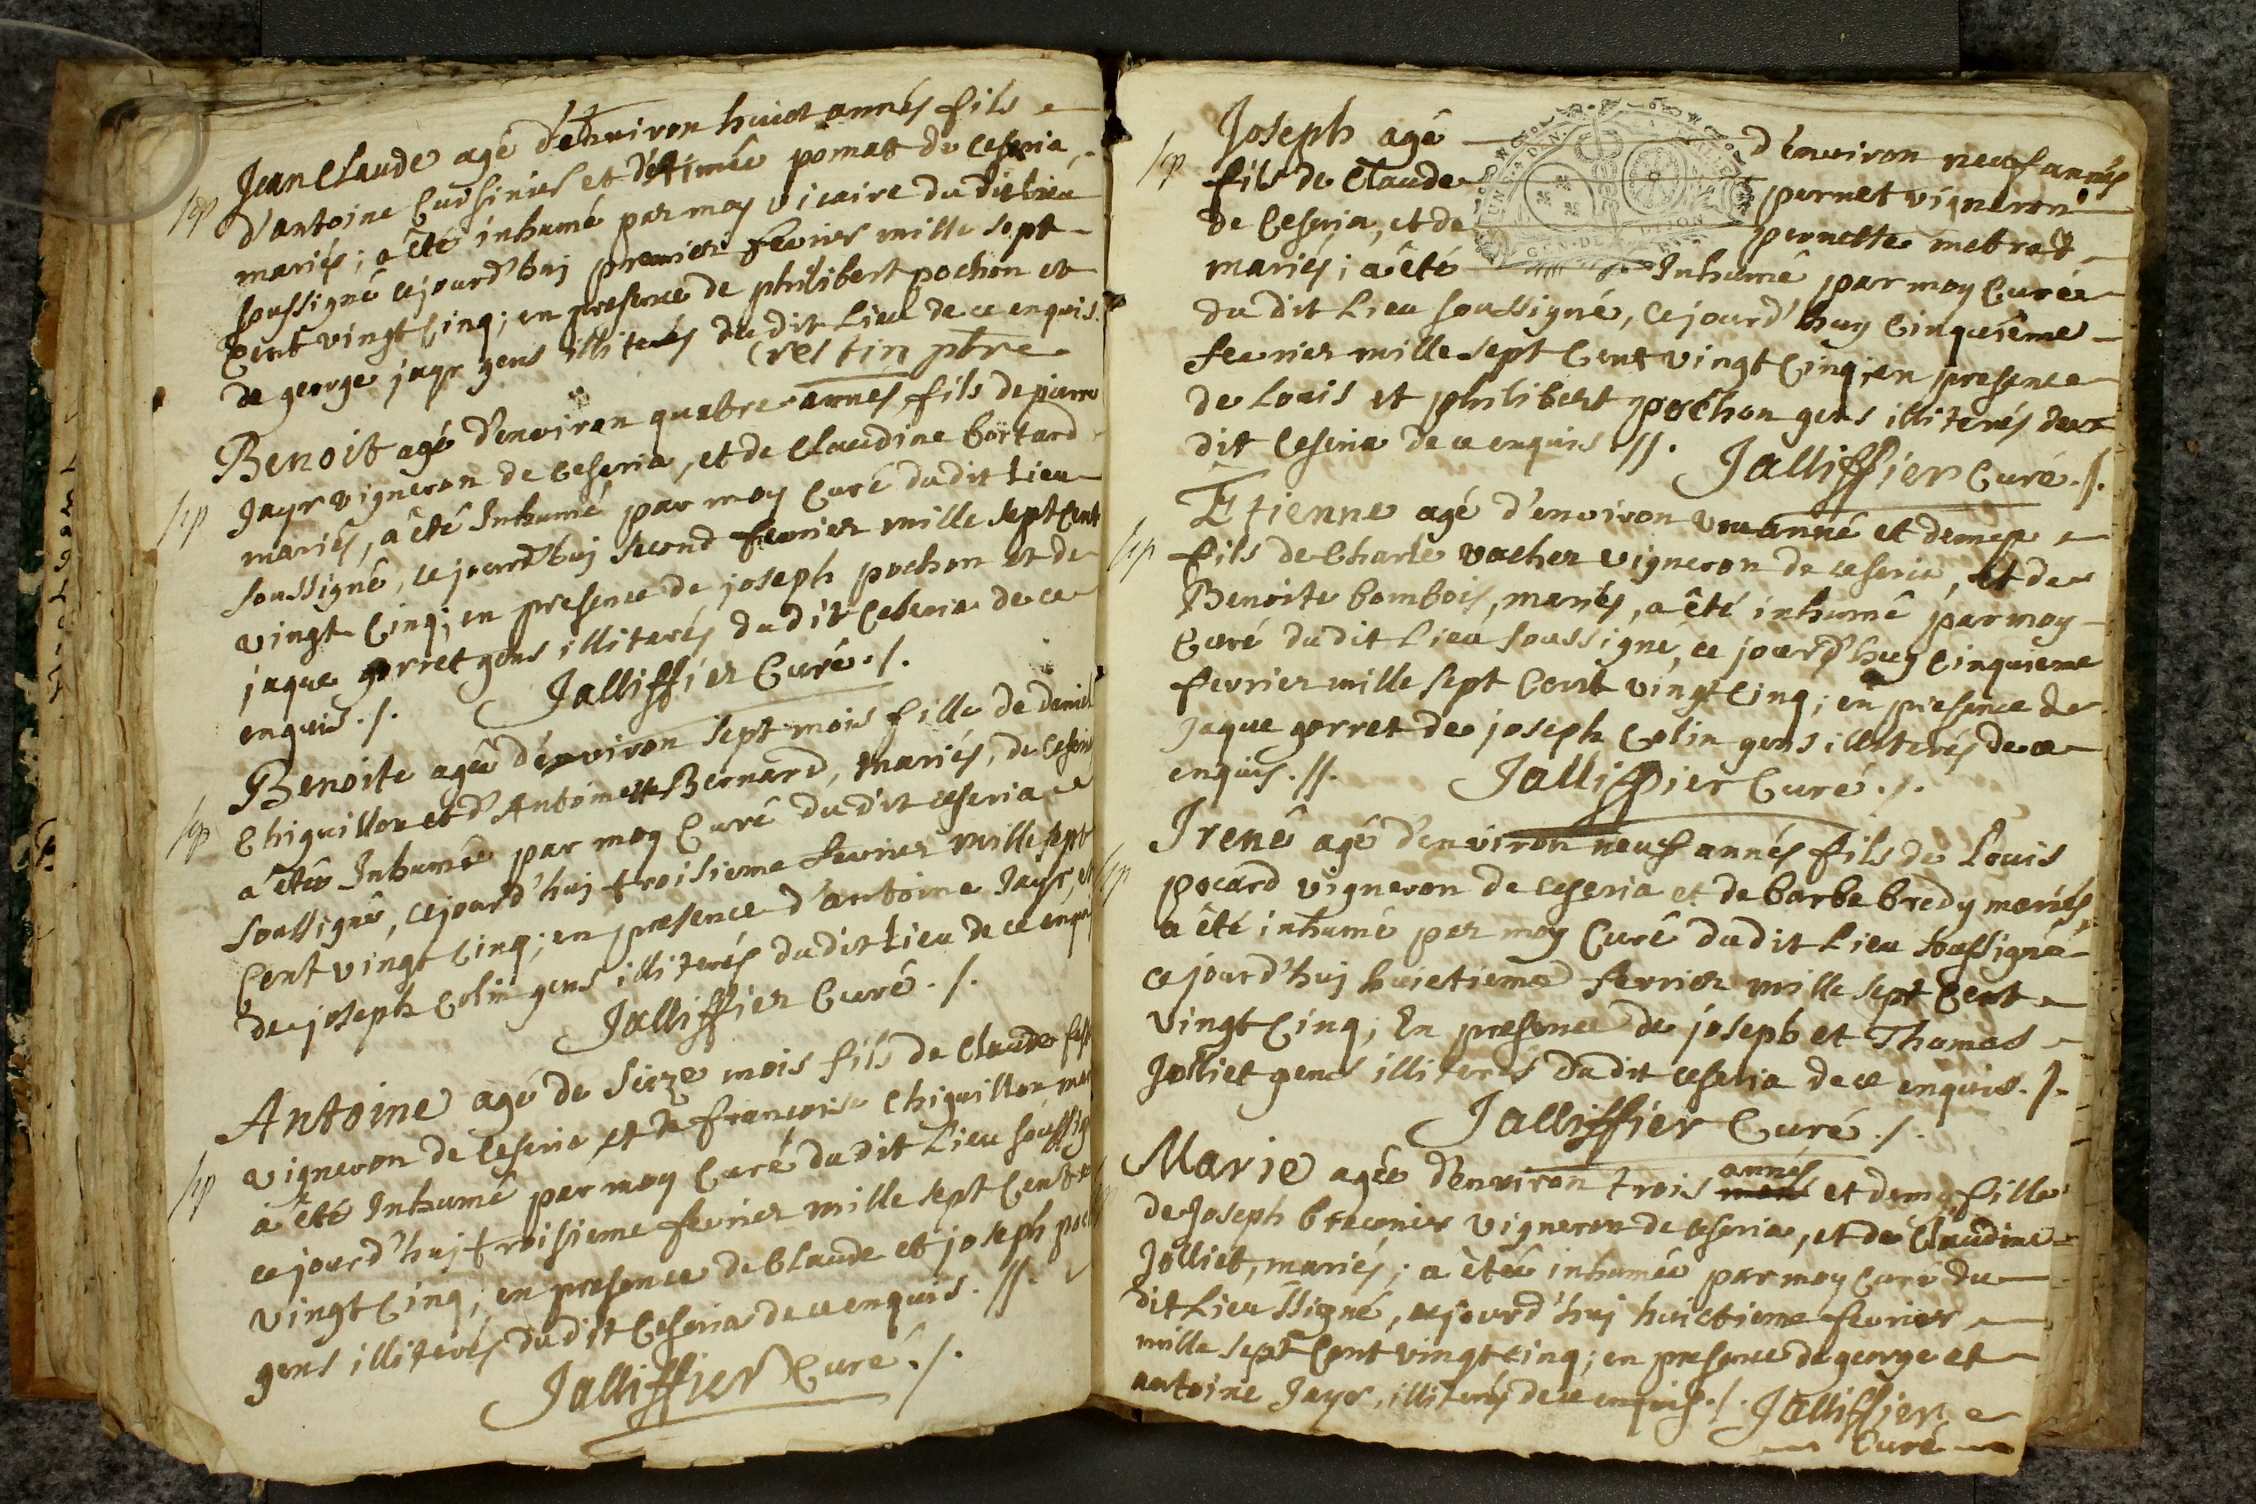 Jean Claude agé d'environ huict annés fils
sep d'antoine Cuisinier et d'Aimée pomat de Ceseria,
mariés; a êté inhumé par moy vicaire du dit lieu
soussigné cejourd'huj premier fevrier mille sept
Cent vingt Cinq; en presence de philibert pochon et
de george jayr gens illiterés du dit Lieu de ce enquis.
Crestin ptre
Benoit agé d'environ quatre annés fils de pierre
sep Jayr vigneron de Ceseria, et de Claudine bortard
mariés, a êté Inhumé par moy Curé dudit Lieu
soussigné, cejourd'huj second fevrier mille sept Cent
vingt Cinq; en presence de joseph pochon et de
jaque gorret gens illiterés dudit Ceseria de ce
enquis ./. Jalliffier Curé ./.
Benoite agée d'environ sept mois fille de deniel
sep Chiguillon et d'Antoinette Bernard, mariés, de Ceseria
a êtée Inhumée par moy Curé dudit ceseria
soussigné, cejourd'huj troisieme fevrier mille sept
Cent vingt Cinq; en presence d'antoine Jayr, et
de joseph Colin gens illiterés dudit Lieu de ce enquis
Jalliffier Curé ./.
Antoine agé de seize mois fils de Claude
sep vigneron de Ceseria et de françoise Chiguillon
a êté Inhumé par moy Curé dudit Lieu soussigné
ce jourd'huj troisieme fevrier mille sept Cent
vingt Cinq; en presence de Claude et joseph
gens illiterés dudit Ceseria de ce enquis .//.
Jalliffier Curé ./.
Joseph agé d'environ neuf annés
sep fils de Claude pernet vigneron
de Ceseria, et de pernette metrat
mariés; a êté Inhumé par moy Curé
du dit Lieu soussigné, Cejourd'huy Cinquiême
fevrier mille sept Cent vingt Cinq; en presence
de Louis et philibert pochon gens illiterés du
dit Ceseria de ce enquis .//. Jalliffier Curé ./.
Etienne agé d'environ une anné et demye
sep fils de Charle vacher vigneron de ceseria, et de
Benoite bombois, mariés, a êté inhumé par moy
Curé dudit Lieu soussigné, ce jourd'huy Cinquieme
fevrier mille sept Cent vingt Cinq; en presence de
Jaque gorret de joseph Colin gens illiterés de ce
enquis .//. Jalliffier Curé ./.
Irené agé d'environ neuf annés fils de Louis
sep pocard vigneron de ceseria et de barbe bredy mariés,
a êté inhumé par moy Curé dudit Lieu soussigné
cejourd'huj huictieme fevrier mille sept Cent
vingt Cinq; En presence de joseph et Thomas
Jolliet gens illiterés dudit ceseria de ce enquis ./.
Jalliffier Curé ./.
Marie agée d'environ trois annés et demy fille
de Joseph vigneron de ceseria, et de Claudine
Jolliet, mariés; a êtée inhumée par moy Curé du
dit Lieu ssigné, cejourd'huj huictieme fevrier
mille sept Cent vingt cinq; en presence de george et
antoine Jayr, illiterés de ce enquis ./. Jalliffier
Curé